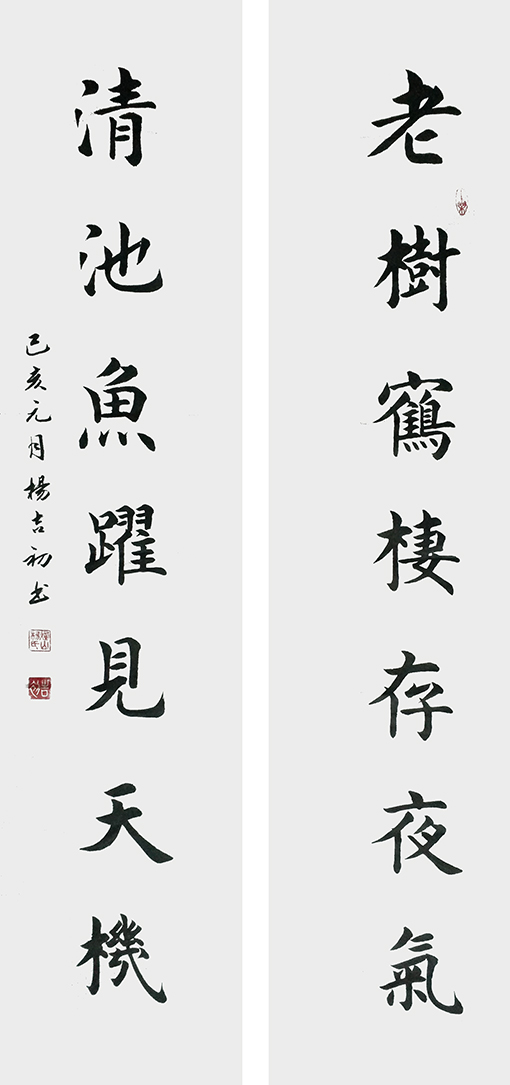 老樹鶴棲存夜氣
清池魚躍見天機
己亥元月楊吉初书